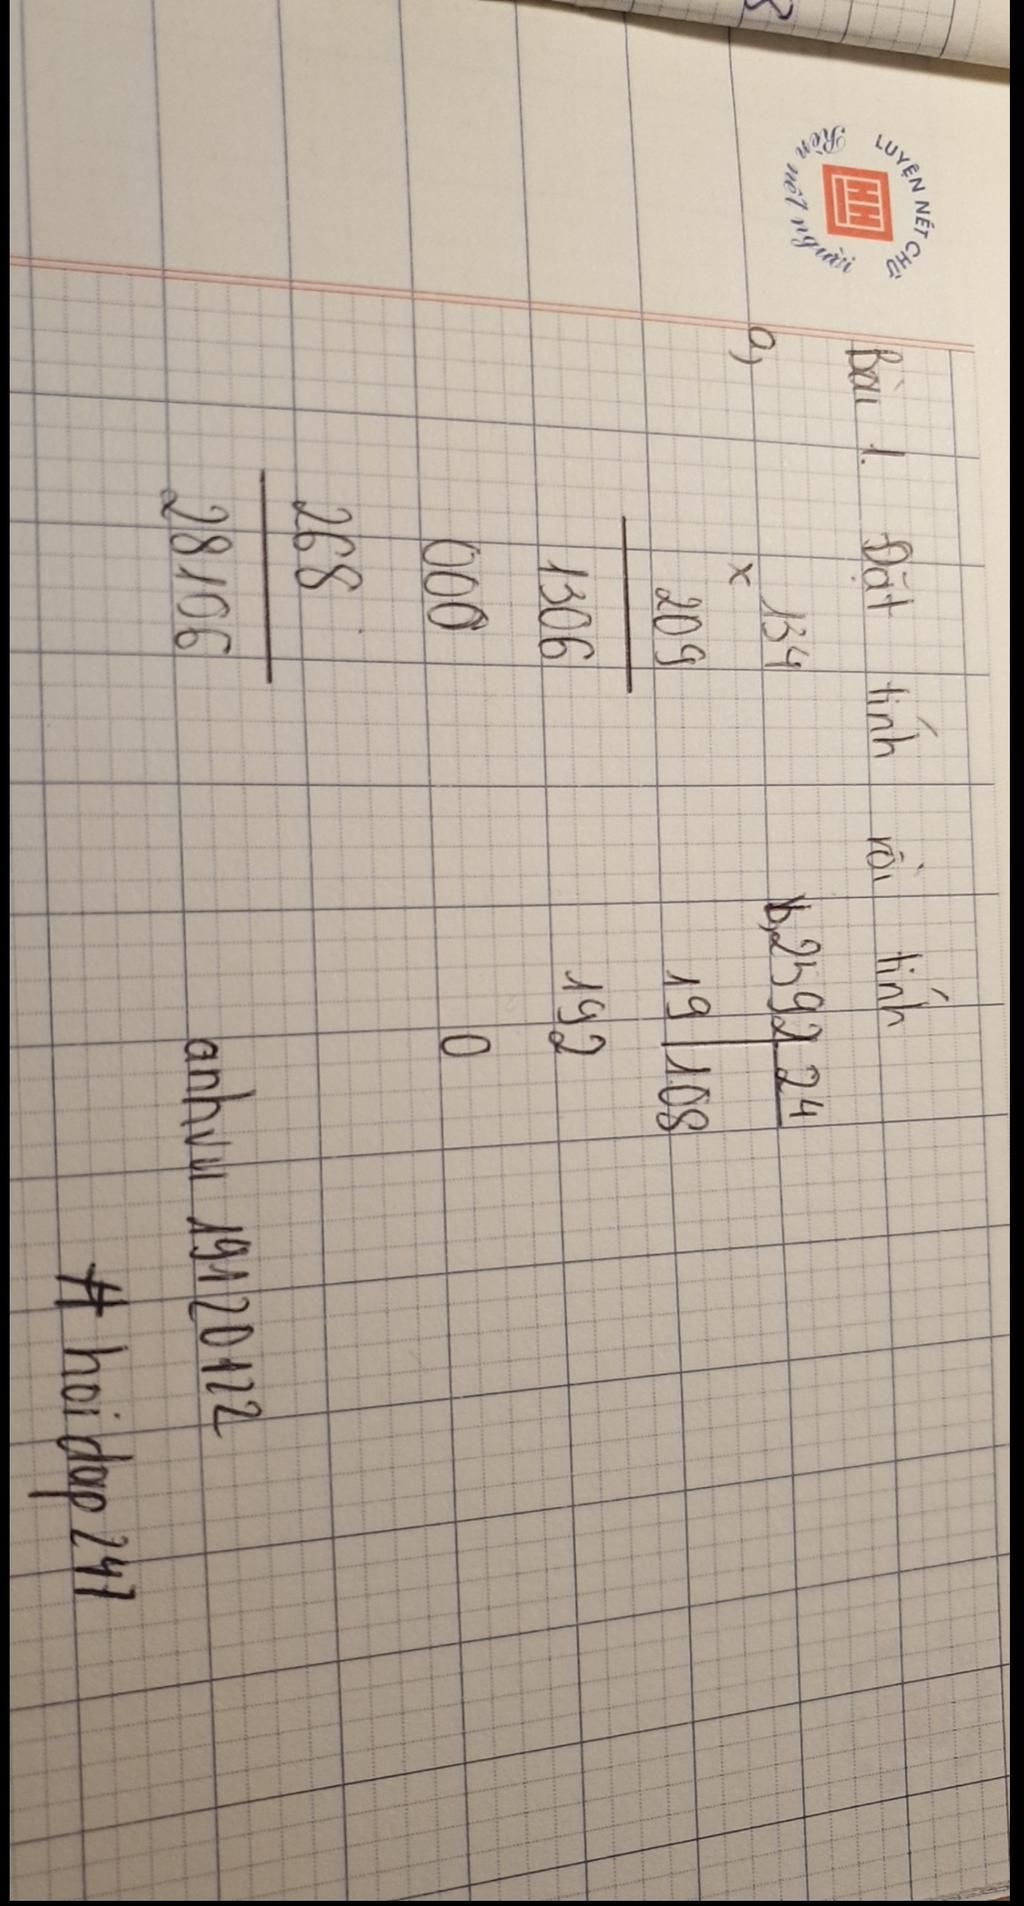 LUYỆN NÉT CHỮ
HH
Rèn nết người
Bài 1. Đặt tính rồi tính
a, 134
x
209
1306
000
268
28106
b, 2592 24
19 108
192
0
anhvu 19120122
# hoidap247